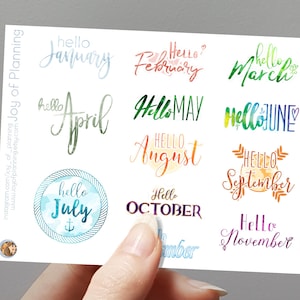 hello
January
Hello
February
hello
March
hello
April
Hello MAY
Hello JUNE
HELLO
August
HELLO
September
hello
July
Hello
OCTOBER
Hello
November
Joy of Planning